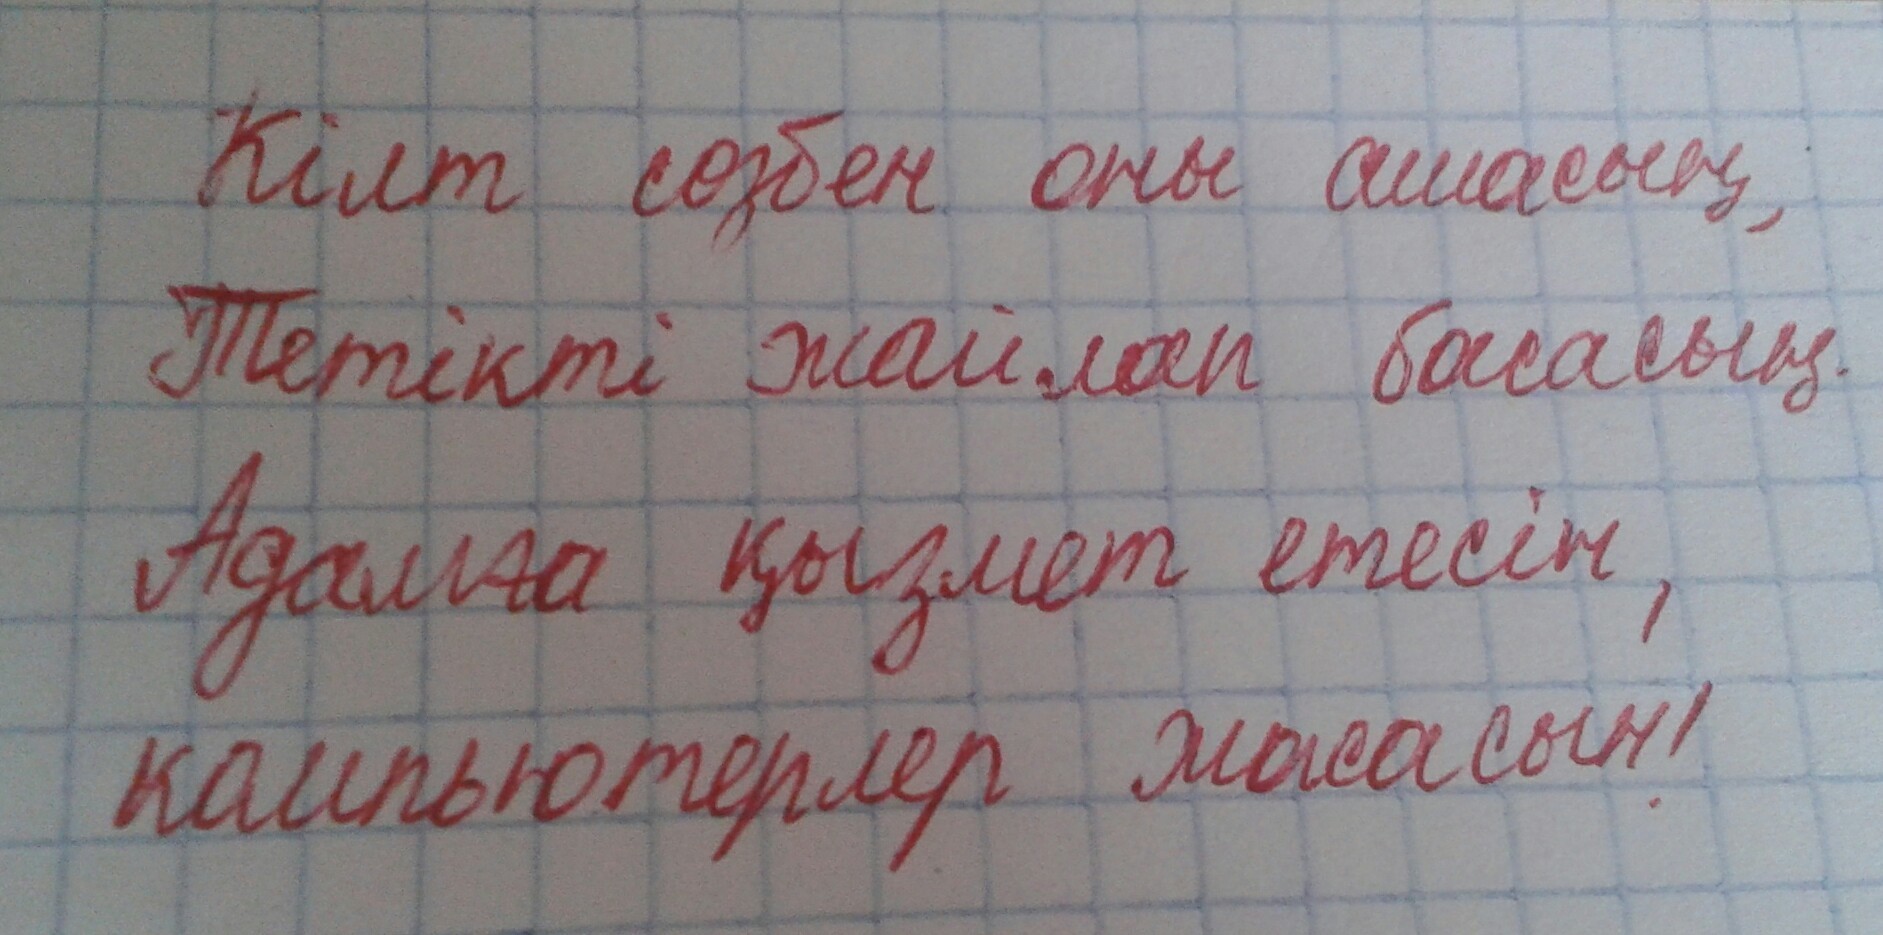 Кілт сөзбен оны ашасың,
Тетікті жайлап басасың.
Адамға қызмет етесін,
компьютерлер жасасын!